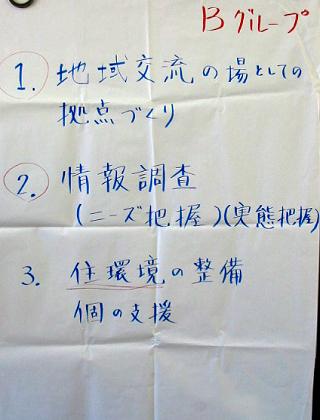 Bグループ
1. 地域交流の場としての
拠点づくり
2. 情報調査
(ニーズ把握)(実態把握)
3. 住環境の整備
個の支援